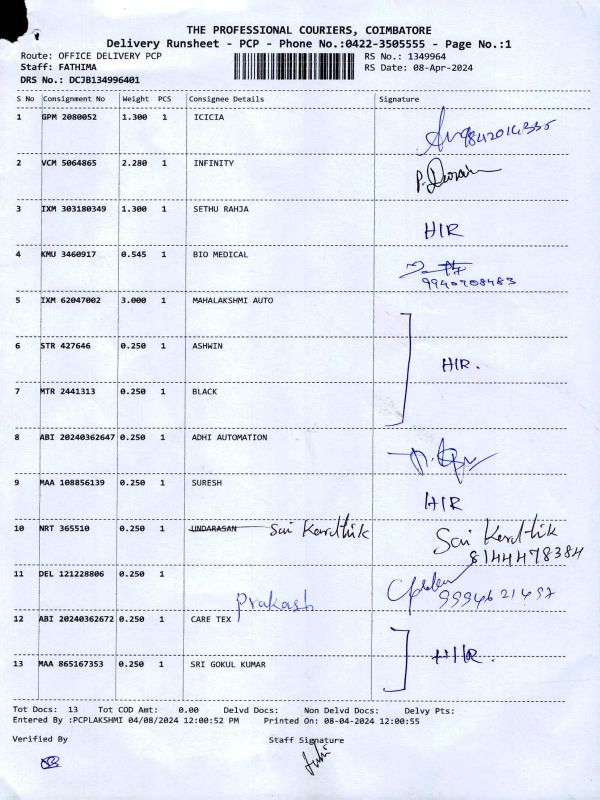 THE PROFESSIONAL COURIERS, COIMBATORE
Delivery Runsheet - PCP - Phone No.:0422-3505555 - Page No.:1
Route: OFFICE DELIVERY PCP RS No.: 1349964
Staff: FATHIMA RS Date: 08-Apr-2024
DRS No.: DCJB134996401
S No Consignment No Weight PCS Consignee Details Signature
1 GPM 2080052 1.300 1 ICICIA
2 VCM 5064865 2.280 1 INFINITY
3 IXM 303180349 1.300 1 SETHU RAHJA HIR
4 KMU 3460917 0.545 1 BIO MEDICAL
9940708483
5 IXM 62047002 3.000 1 MAHALAKSHMI AUTO
6 STR 427646 0.250 1 ASHWIN
HIR.
7 MTR 2441313 0.250 1 BLACK
8 ABI 20240362647 0.250 1 ADHI AUTOMATION
9 MAA 108856139 0.250 1 SURESH HIR
10 NRT 365510 0.250 1 UNDARASAN Sai Karthik Sai Karthik
8144478384
11 DEL 121228806 0.250 1
Prakash 9994621497
12 ABI 20240362672 0.250 1 CARE TEX
HIR.
13 MAA 865167353 0.250 1 SRI GOKUL KUMAR
Tot Docs: 13 Tot COD Amt: 0.00 Delvd Docs: Non Delvd Docs: Delvy Pts:
Entered By :PCPLAKSHMI 04/08/2024 12:00:52 PM Printed On: 08-04-2024 12:00:55
Verified By Staff Signature